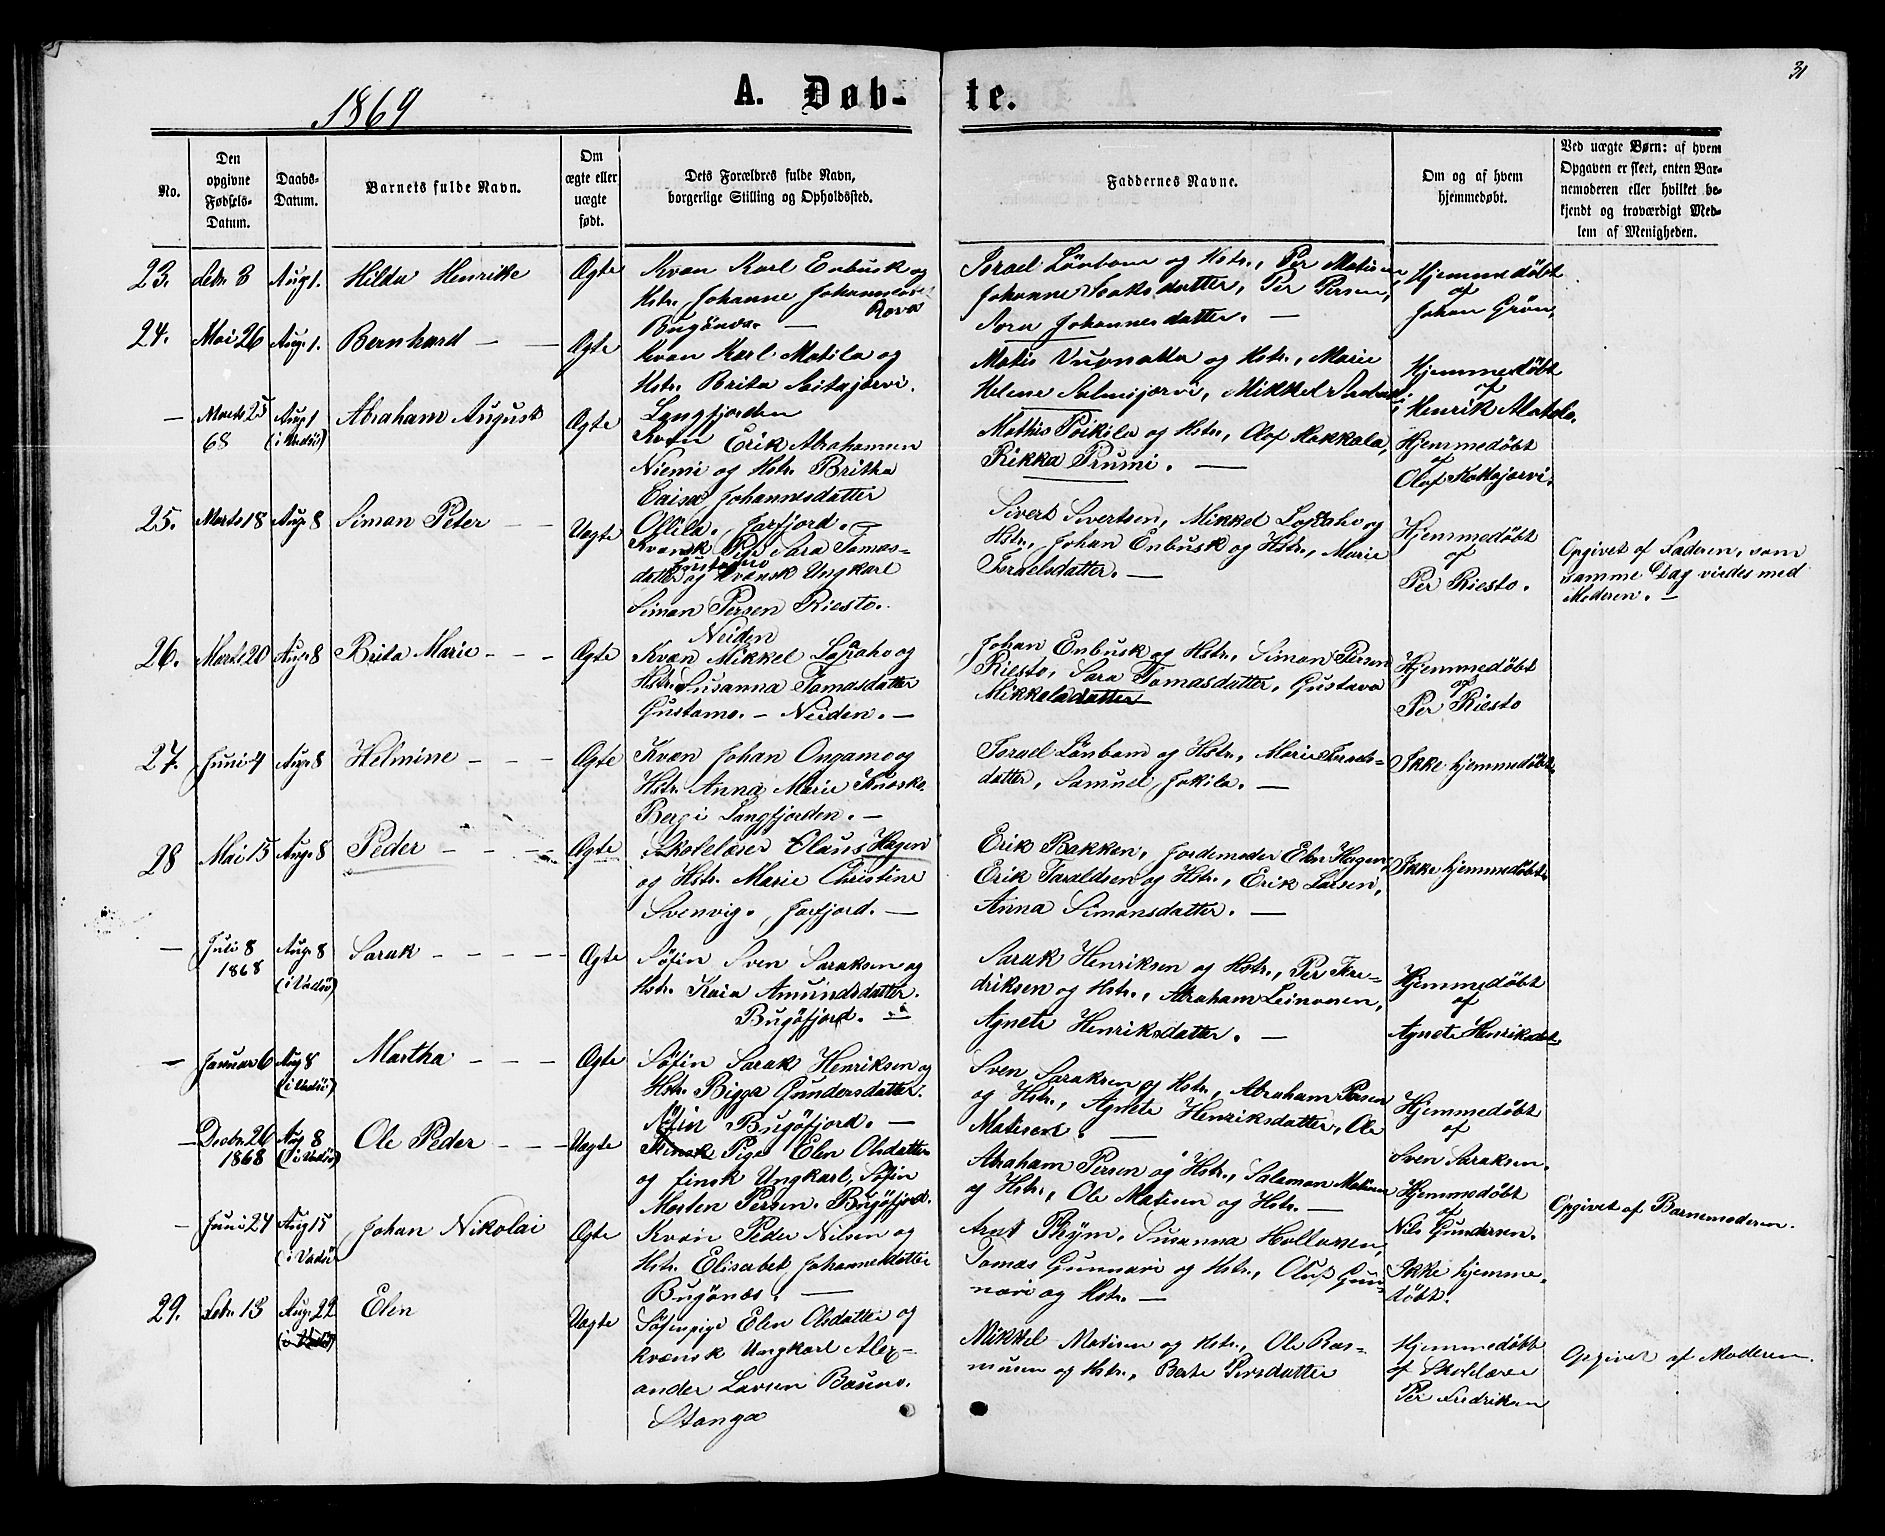 31
1869
A. Døb-
te.
No.
Den
opgivne
Fødsels-
Datum.
Daabs-
Datum.
Barnets fulde Navn.
Om
ægte eller
uægte
født.
Dets Forældres fulde Navn,
borgerlige Stilling og Opholdssted.
Faddernes Navne.
Om og af hvem
hjemmedøbt.
Ved uægte Børn: af hvem
Opgaven er skeet, enten Bar-
nemoderen eller hvilket be-
kjendt og troværdigt Med-
lem af Menigheden.
23. Febr. 3 Aug 1. Hilda Henrikke Ægte
Kvæn Karl Enbusk og
Hstr. Johanne
Bugönæs. —
Israel Lönbom og Hstr., Per Matisen,
Johanne Isaksdatter, Per Persen,
Sara Johannesdatter. —
Hjemmedøbt
af
Johan Grön.
24. Mai 26 Aug. 1. Bernhard — — Ægte
Kvæn Karl Matila og
Hstr. Brita Saitajærvi.
Langfjorden
Matis Vuonatta og Hstr., Marie
Helene Salmijærvi, Mikkel
Hjemmedøbt
af
Henrik
— Marts 25
68
Aug 1
(i Vadsö)
Abraham August Ægte
Kvæn Erik Abrahamsen
Niemi og Hstr. Britha
Caisa Johannesdatter
Ollila. Jarfjord. —
Mathis Poikila og Hstr., Olof Kokkala,
Rikka Prumi. —
Hjemmedøbt
af
Olof Kokojærvi.
25. Marts 18 Aug. 8 Simon Peter — — Uægte
Kvænsk Pige Sara Tomas-
datter Gustamo og Kvænsk Ungkarl
Simon Persen Riesto.
Neiden
Sivert Sivertsen, Mikkel Lossaho og
Hstr., Johan Enbusk og Hstr., Marie
Israelsdatter. —
Hjemmedøbt
af
Per Riesto.
Opgivet af Faderen, som
samme Dag viedes med
Moderen. —
26. Marts 20 Aug. 8 Brita Marie — — Ægte
Kvæn Mikkel Lossaho og
Hstr. Susanna Tomasdatter
Gustamo. — Neiden. —
Johan Enbusk og Hstr., Simon Persen
Riesto, Sara Tomasdatter, Gustava
Mikkelsdatter
Hjemmedøbt
af
Per Riesto
27. Juni 4 Aug. 8 Helmine — — — Ægte
Kvæn Johan Ongamo og
Hstr. Anna Marie
Berg i Langfjorden. —
Israel Lönbom og Hstr., Marie Israels-
datter, Samuel Jokila. —
Ikke hjemmedøbt.
28 Mai 15 Aug. 8 Peder — — — — Ægte
Skolelærer Olaus Hagen
og Hstr. Marie Christine
Svenvig. Jarfjord. —
Erik Bakken, Jordemoder Elen Hagen,
Erik Taraldsen og Hstr., Erik Larsen,
Anna Simonsdatter. —
Ikke hjemmedøbt.
— Juli 8
1868
Aug. 8
(i Vadsö)
Sarak — — — — — Ægte
Söfin Sven Saraksen og
Hstr. Kaia Amundsdatter.
Bugöfjord. —
Sarak Henriksen og Hstr., Per Fre-
driksen og Hstr., Abraham Leinonen,
Agnete Henriksdatter. —
Hjemmedøbt
af
Agnete Henriksdat.
— Januar 6 Aug 8
(i Vadsö)
Martha — — — Ægte
Söfin Sarak Henriksen og
Hstr. Bigga Gundersdatter.
Bugöfjord. —
Sven Saraksen og Hstr., Abraham Persen
og Hstr., Agnete Henriksdatter, Ole
Matisen. —
Hjemmedøbt
af
Sven Saraksen.
— Decbr. 26
1868
Aug. 8
(i Vadsö)
Ole Peder — — — Uægte
Söfin
Finsk Pige Elen Olsdatter
og finsk Ungkarl, Söfin
Morten Persen. Bugöfjord.
Abraham Persen og Hstr., Salamon Matisen
og Hstr., Ole Matisen og Hstr. —
Hjemmedøbt
af
Nils Gundersen.
Opgivet af Barnemoderen.
— Juni 24 Aug 15
(i Vadsö)
Johan Nikolai Ægte
Kvæn Peder Nilsen og
Hstr. Elisabet Johannesdatter
Bugönæs. —
Arnt Thrym. Susanna
Tomas Gunnari og Hstr., Oluf Gun-
nari og Hstr. —
Ikke hjemme-
døbt.
29. Febr. 13 Aug. 22
(i Vadsö)
Elen Uægte
Söfinpige Elen Olsdatter og
kvænsk Ungkarl Alex-
ander Larsen Bauno.
Stanga
Mikkel Matisen og Hstr., Ole Ras-
musen og Hstr., Berte Persdatter
Hjemmedøbt
af Skolelærer
Per Fredriksen
Opgivet af Moderen.